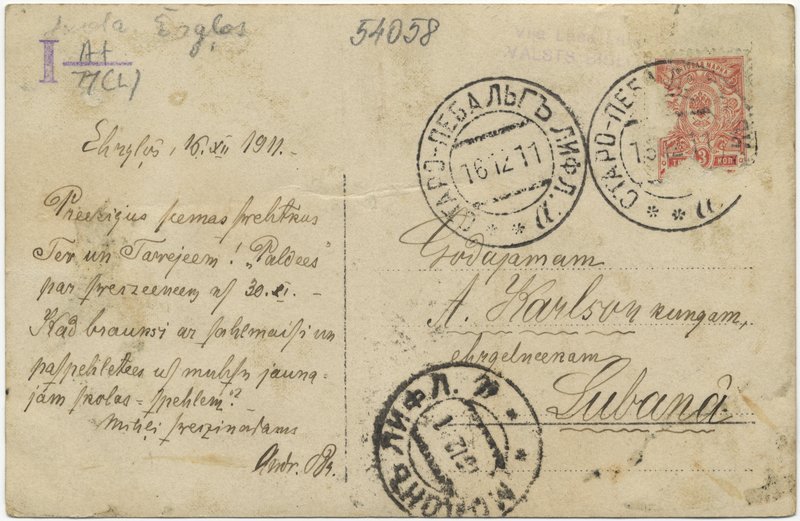 Ērgļos
54058
I A+
77(L)
VALSTS
СТАРО-ПЕБАЛЬГЪ ЛИФЛ.
16 12 11
СТАРО-ПЕБА
3 КОП
Ehrgļos, 16. XII 1911.
Preezigus seemas swehtkus
Tev un Tawejeem! "Paldees"
par sweizeeneem us 30. XI. –
Kad brauksi ar sahlmaisi un
paspehletees us muhsu jauna-
jam skolas-spehlem?
Mihļi sweizinadams
Andr.
Godajamam
A. Karlson kungam,
ehrgelneekam
Lubanâ
МОДОНЪ ЛИФЛ.